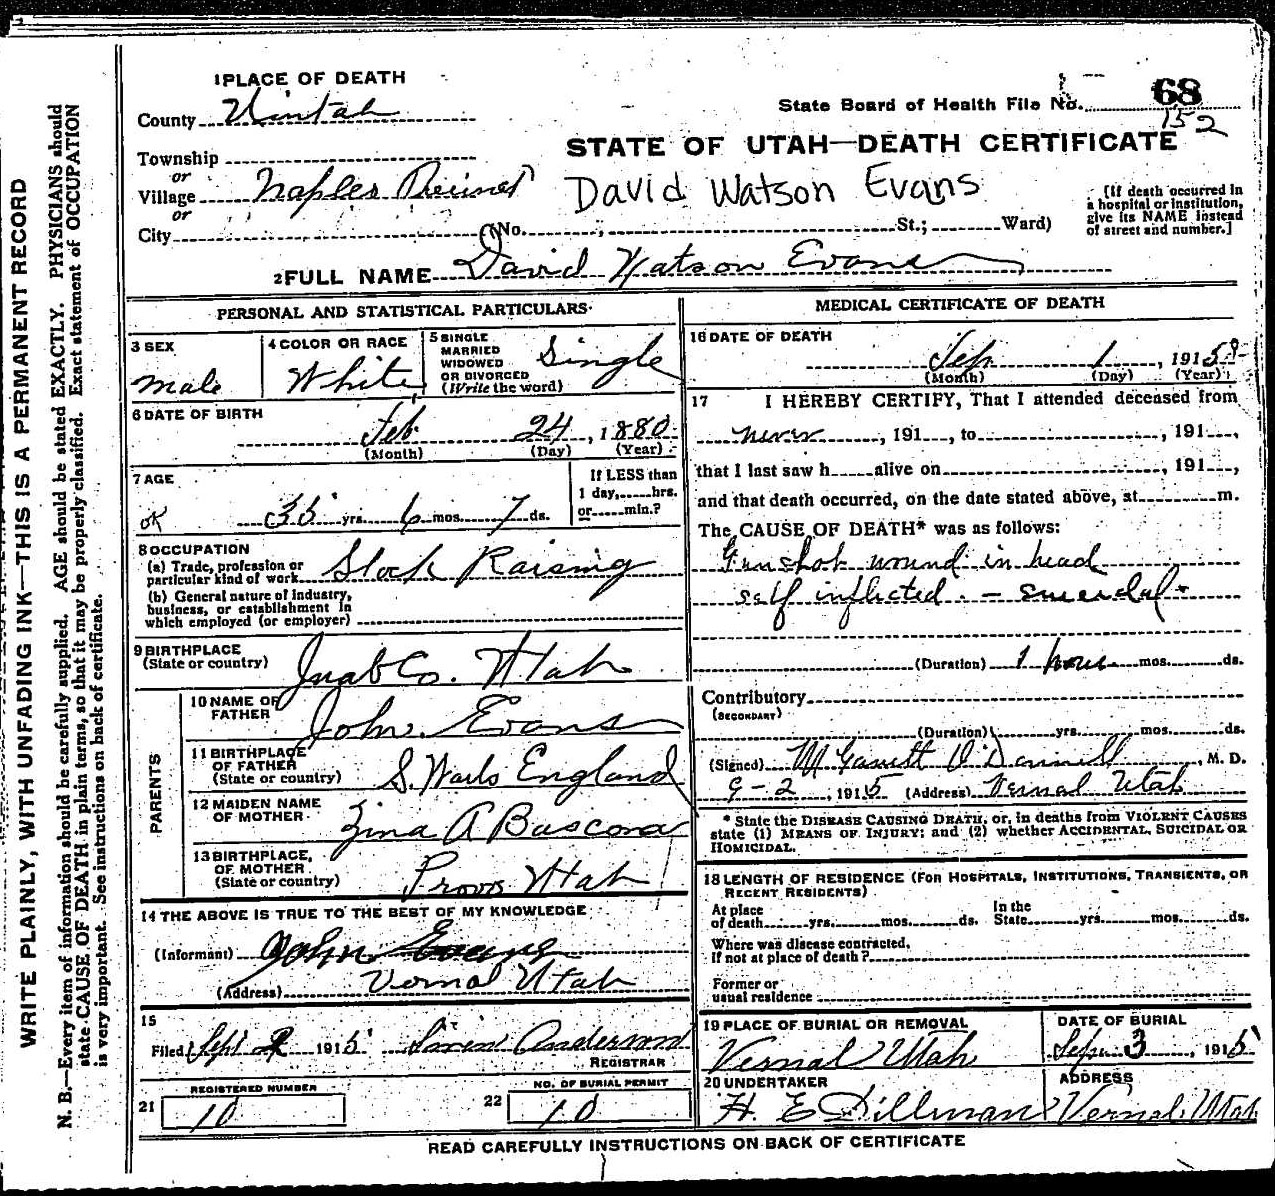 WRITE PLAINLY, WITH UNFADING INK—THIS IS A PERMANENT RECORD
N. B.—Every item of information should be carefully supplied. AGE should be stated EXACTLY. PHYSICIANS should
state CAUSE OF DEATH in plain terms, so that it may be properly classified. Exact statement of OCCUPATION
is very important. See instructions on back of certificate.
1 PLACE OF DEATH
County Uintah
State Board of Health File No. 68
152
Township
STATE OF UTAH—DEATH CERTIFICATE
or
Village Naples Precinct
David Watson Evans
or
City (No. St.; Ward)
(If death occurred in
a hospital or institution,
give its NAME instead
of street and number.]
2 FULL NAME David Watson Evans
PERSONAL AND STATISTICAL PARTICULARS
3 SEX
male
4 COLOR OR RACE
White
5 SINGLE
MARRIED
WIDOWED
OR DIVORCED
(Write the word)
Single
6 DATE OF BIRTH
Feb 24, 1880
(Month) (Day) (Year)
7 AGE
ok 35 yrs. 6 mos. 7 ds.
If LESS than
1 day, hrs.
or min.?
8 OCCUPATION
(a) Trade, profession or
particular kind of work Stock Raising
(b) General nature of industry,
business, or establishment in
which employed (or employer)
9 BIRTHPLACE
(State or country) Juab Co. Utah
PARENTS
10 NAME OF
FATHER John Evans
11 BIRTHPLACE
OF FATHER
(State or country) S. Wails England
12 MAIDEN NAME
OF MOTHER Zina A
13 BIRTHPLACE,
OF MOTHER
(State or country) Provo Utah
14 THE ABOVE IS TRUE TO THE BEST OF MY KNOWLEDGE
(Informant) John Evans
(Address) Vernal Utah
15
Filed Sept 2 1915 Anderson
REGISTRAR
REGISTERED NUMBER
21 10
NO. OF BURIAL PERMIT
22 10
MEDICAL CERTIFICATE OF DEATH
16 DATE OF DEATH
Sep 1, 1915
(Month) (Day) (Year)
17 I HEREBY CERTIFY, That I attended deceased from
never, 191, to, 191,
that I last saw h alive on, 191,
and that death occurred, on the date stated above, at m.
The CAUSE OF DEATH* was as follows:
Gunshot wound in head
self inflicted. — suicidal
(Duration) 1 hour mos. ds.
Contributory
(SECONDARY)
(Duration) yrs. mos. ds.
(Signed) M. D.
9-2, 1915 (Address) Vernal Utah
* State the DISEASE CAUSING DEATH, or, in deaths from VIOLENT CAUSES
state (1) MEANS OF INJURY; and (2) whether ACCIDENTAL, SUICIDAL OR
HOMICIDAL.
18 LENGTH OF RESIDENCE (FOR HOSPITALS, INSTITUTIONS, TRANSIENTS, OR
RECENT RESIDENTS)
At place
of death yrs. mos. ds.
In the
State yrs. mos. ds.
Where was disease contracted,
if not at place of death?
Former or
usual residence
19 PLACE OF BURIAL OR REMOVAL
Vernal Utah
DATE OF BURIAL
Sep 3, 1915
20 UNDERTAKER
H. E Dillman
ADDRESS
Vernal, Utah
READ CAREFULLY INSTRUCTIONS ON BACK OF CERTIFICATE